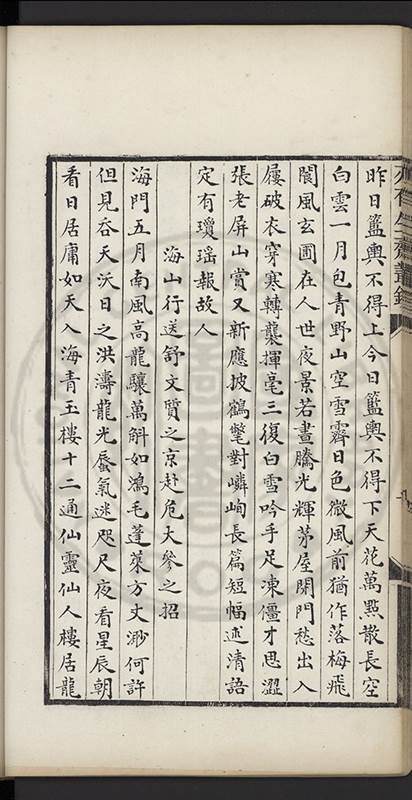 昨日籃輿不得上今日籃輿不得下天花萬點散長空
白雲一月包青野山空雪霽日色微風前猶作落梅飛
閬風玄圃在人世夜景若晝騰光輝茅屋閉門愁出入
屐破衣穿寒轉襲揮毫三復白雪吟手足凍僵才思澀
張老屏山賞又新應披鶴氅對嶙峋長篇短幅述清語
定有瓊瑤報故人
海山行送舒文質之京赴危大參之招
海門五月南風高龍驤萬斛如鴻毛蓬萊方丈渺何許
但見吞天沃日之洪濤龍光蜃氣迷咫尺夜看星辰朝
看日居庸如天入海青玉樓十二通仙靈仙人樓居龍